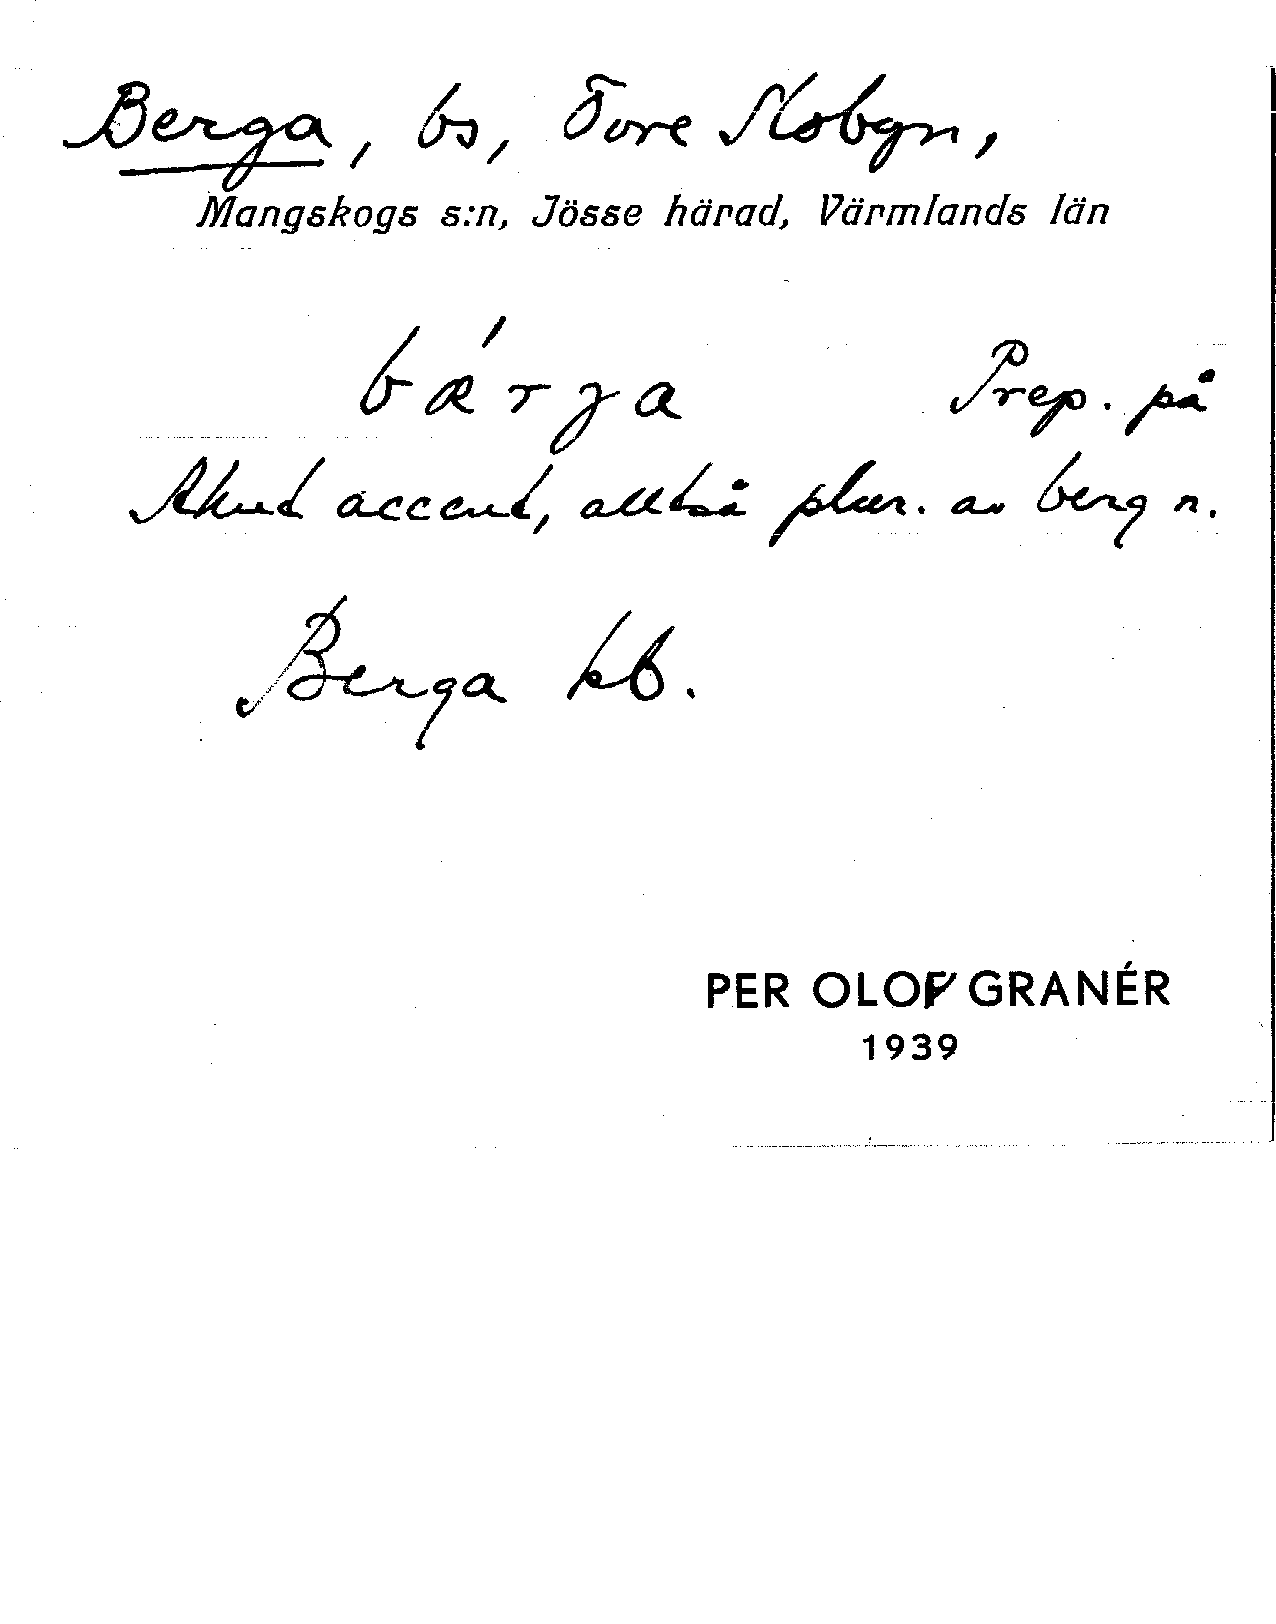 Berga, bs, Övre Slobyn,
Mangskogs s:n, Jösse härad, Värmlands län
bǽrja Prep. på
Akut accent, alltså plur. av berg n.
Berga kb.
PER OLOF GRANÉR
1939